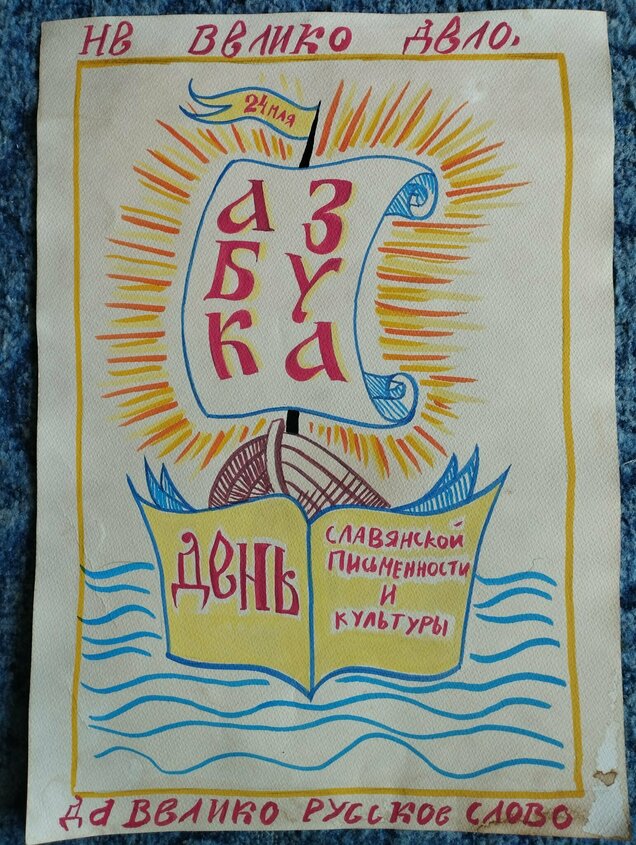 Не велико дело,
24 мая
А З
Б У
К А
День
СЛАВЯНСКОЙ
ПИСЬМЕННОСТИ
И
КУЛЬТУРЫ
Да велико русское слово